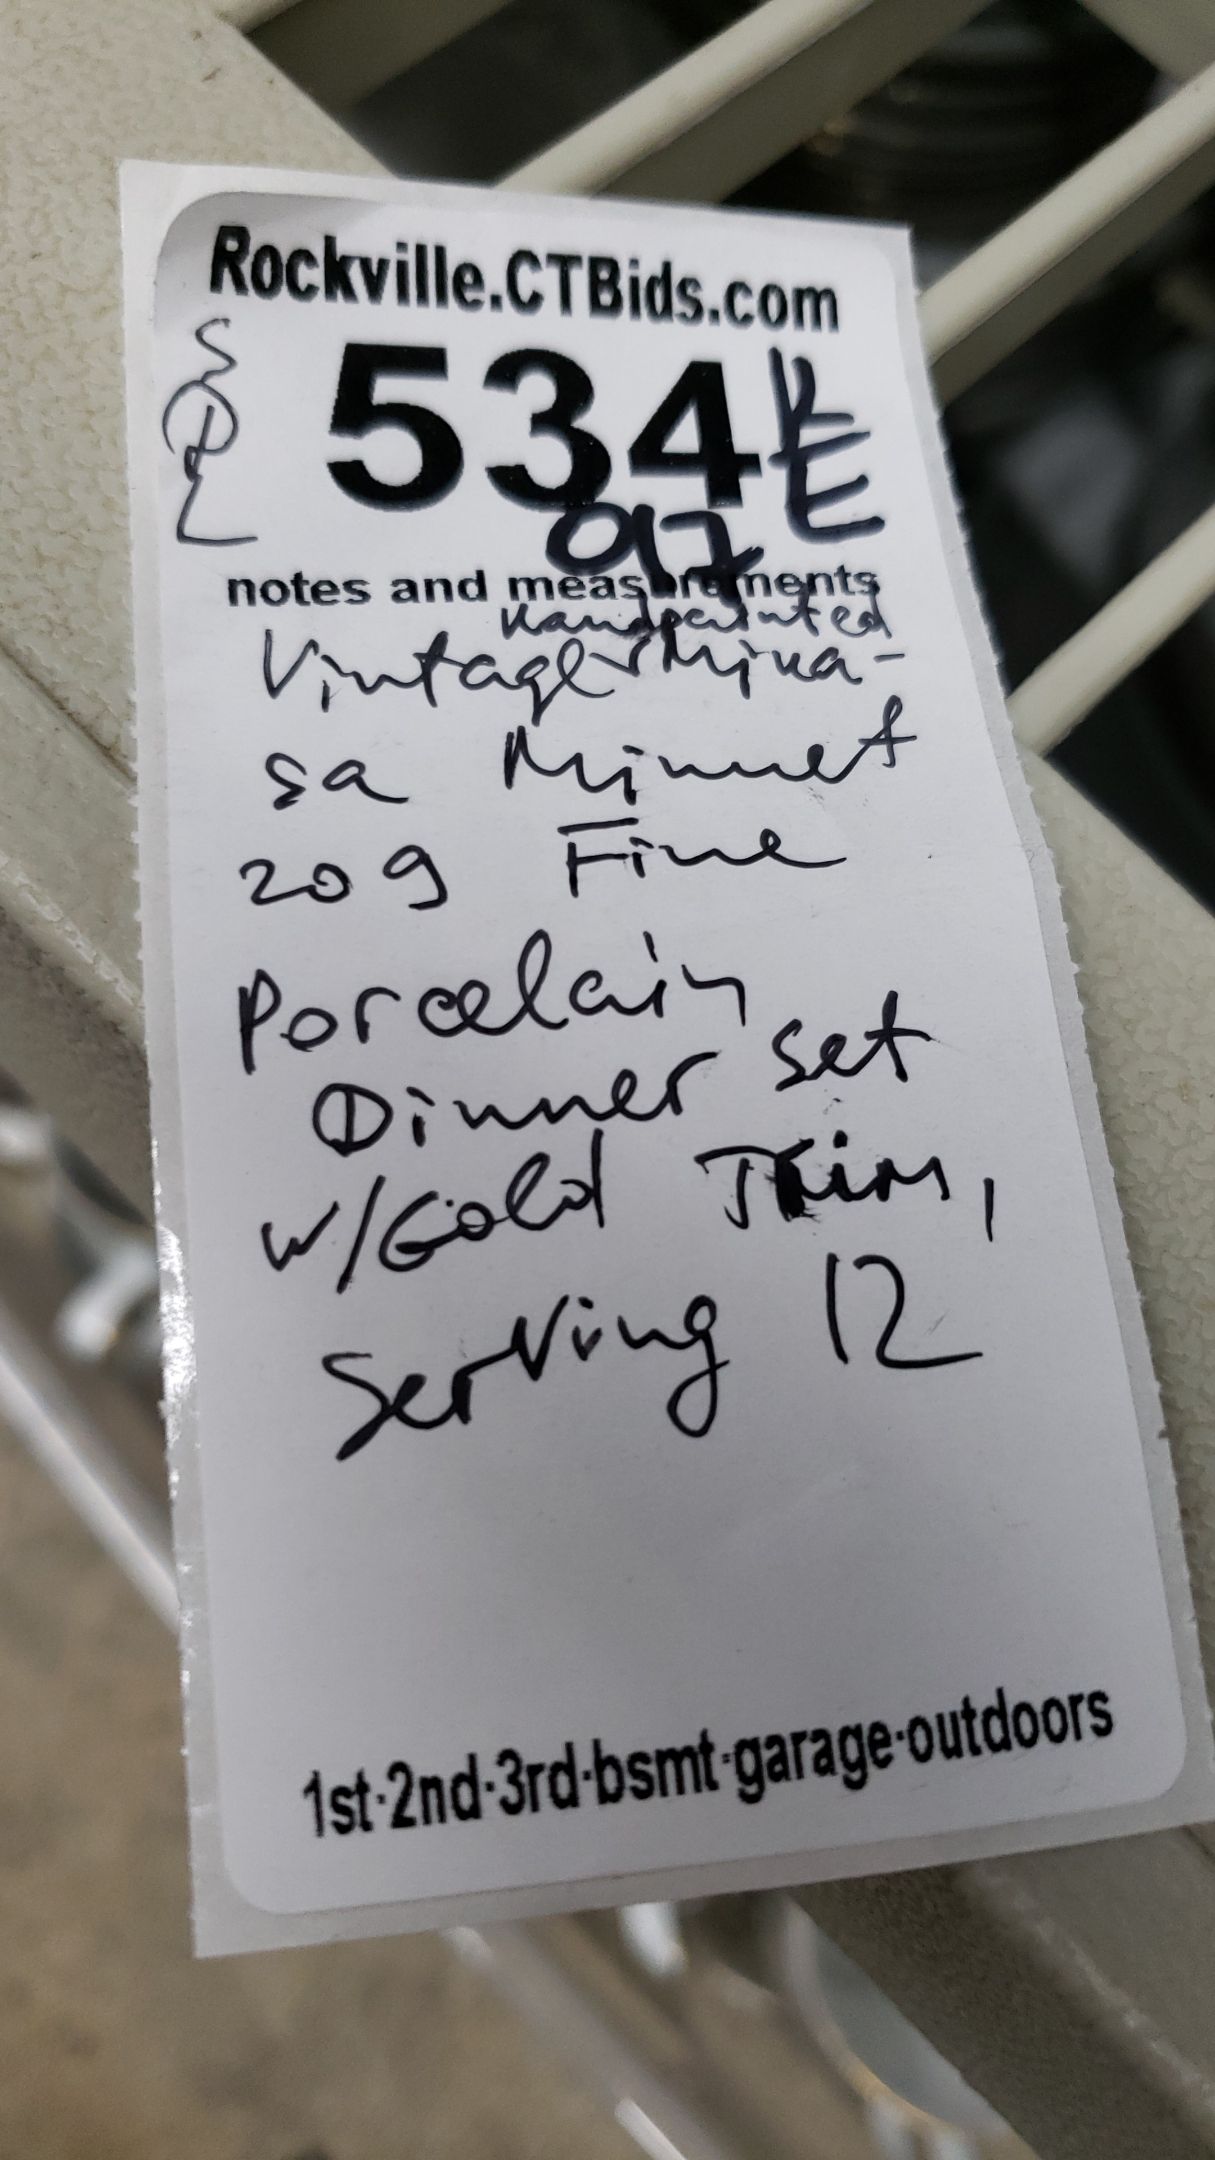 Rockville.CTBids.com
534
notes and measurements
handpainted
Vintage Mika-
sa Minuet
209 Fine
Porcelain
Dinner set
w/Gold Trim,
Serving 12
1st·2nd·3rd·bsmt·garage·outdoors